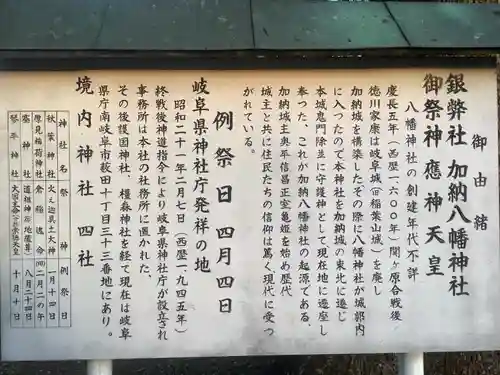 御由緒
銀幣社 加納八幡神社
御祭神 應神天皇
八幡神社の創建年代不詳
慶長五年(西歴一六〇〇年)関ヶ原合戦後
徳川家康は岐阜城(旧稲葉山城)を廃し
加納城を構築したその際に八幡神社が城郭内
に入ったので本神社を加納城の東北に遷じ
本城鬼門除並に守護神として現在地に遷座し
奉った、これが加納八幡神社の起源である、
加納城主奥平信昌正室亀姫を始め歴代
城主と共に住民たちの信仰は篤く現代に受つ
がれている。
例祭日 四月四日
岐阜県神社庁発祥の地
昭和二十一年二月七日(西歴一、九四五年)
終戦後神道指令により岐阜県神社庁が設立され
事務所は本社の社務所に置かれた、
その後護国神社、橿森神社を経て現在は岐阜
県庁南岐阜市薮田十丁目三十三番地にあり。
境内神社 四社
神社名 祭神 例祭日
秋葉神社 火之迦具土大神 一月十四日
厚見稲荷神社 倉稲魂命 (旧)二月二の午
塞神社 道祖神(地蔵尊) 八月二十四日
琴平神社 大国主命 崇徳天皇 十月十日